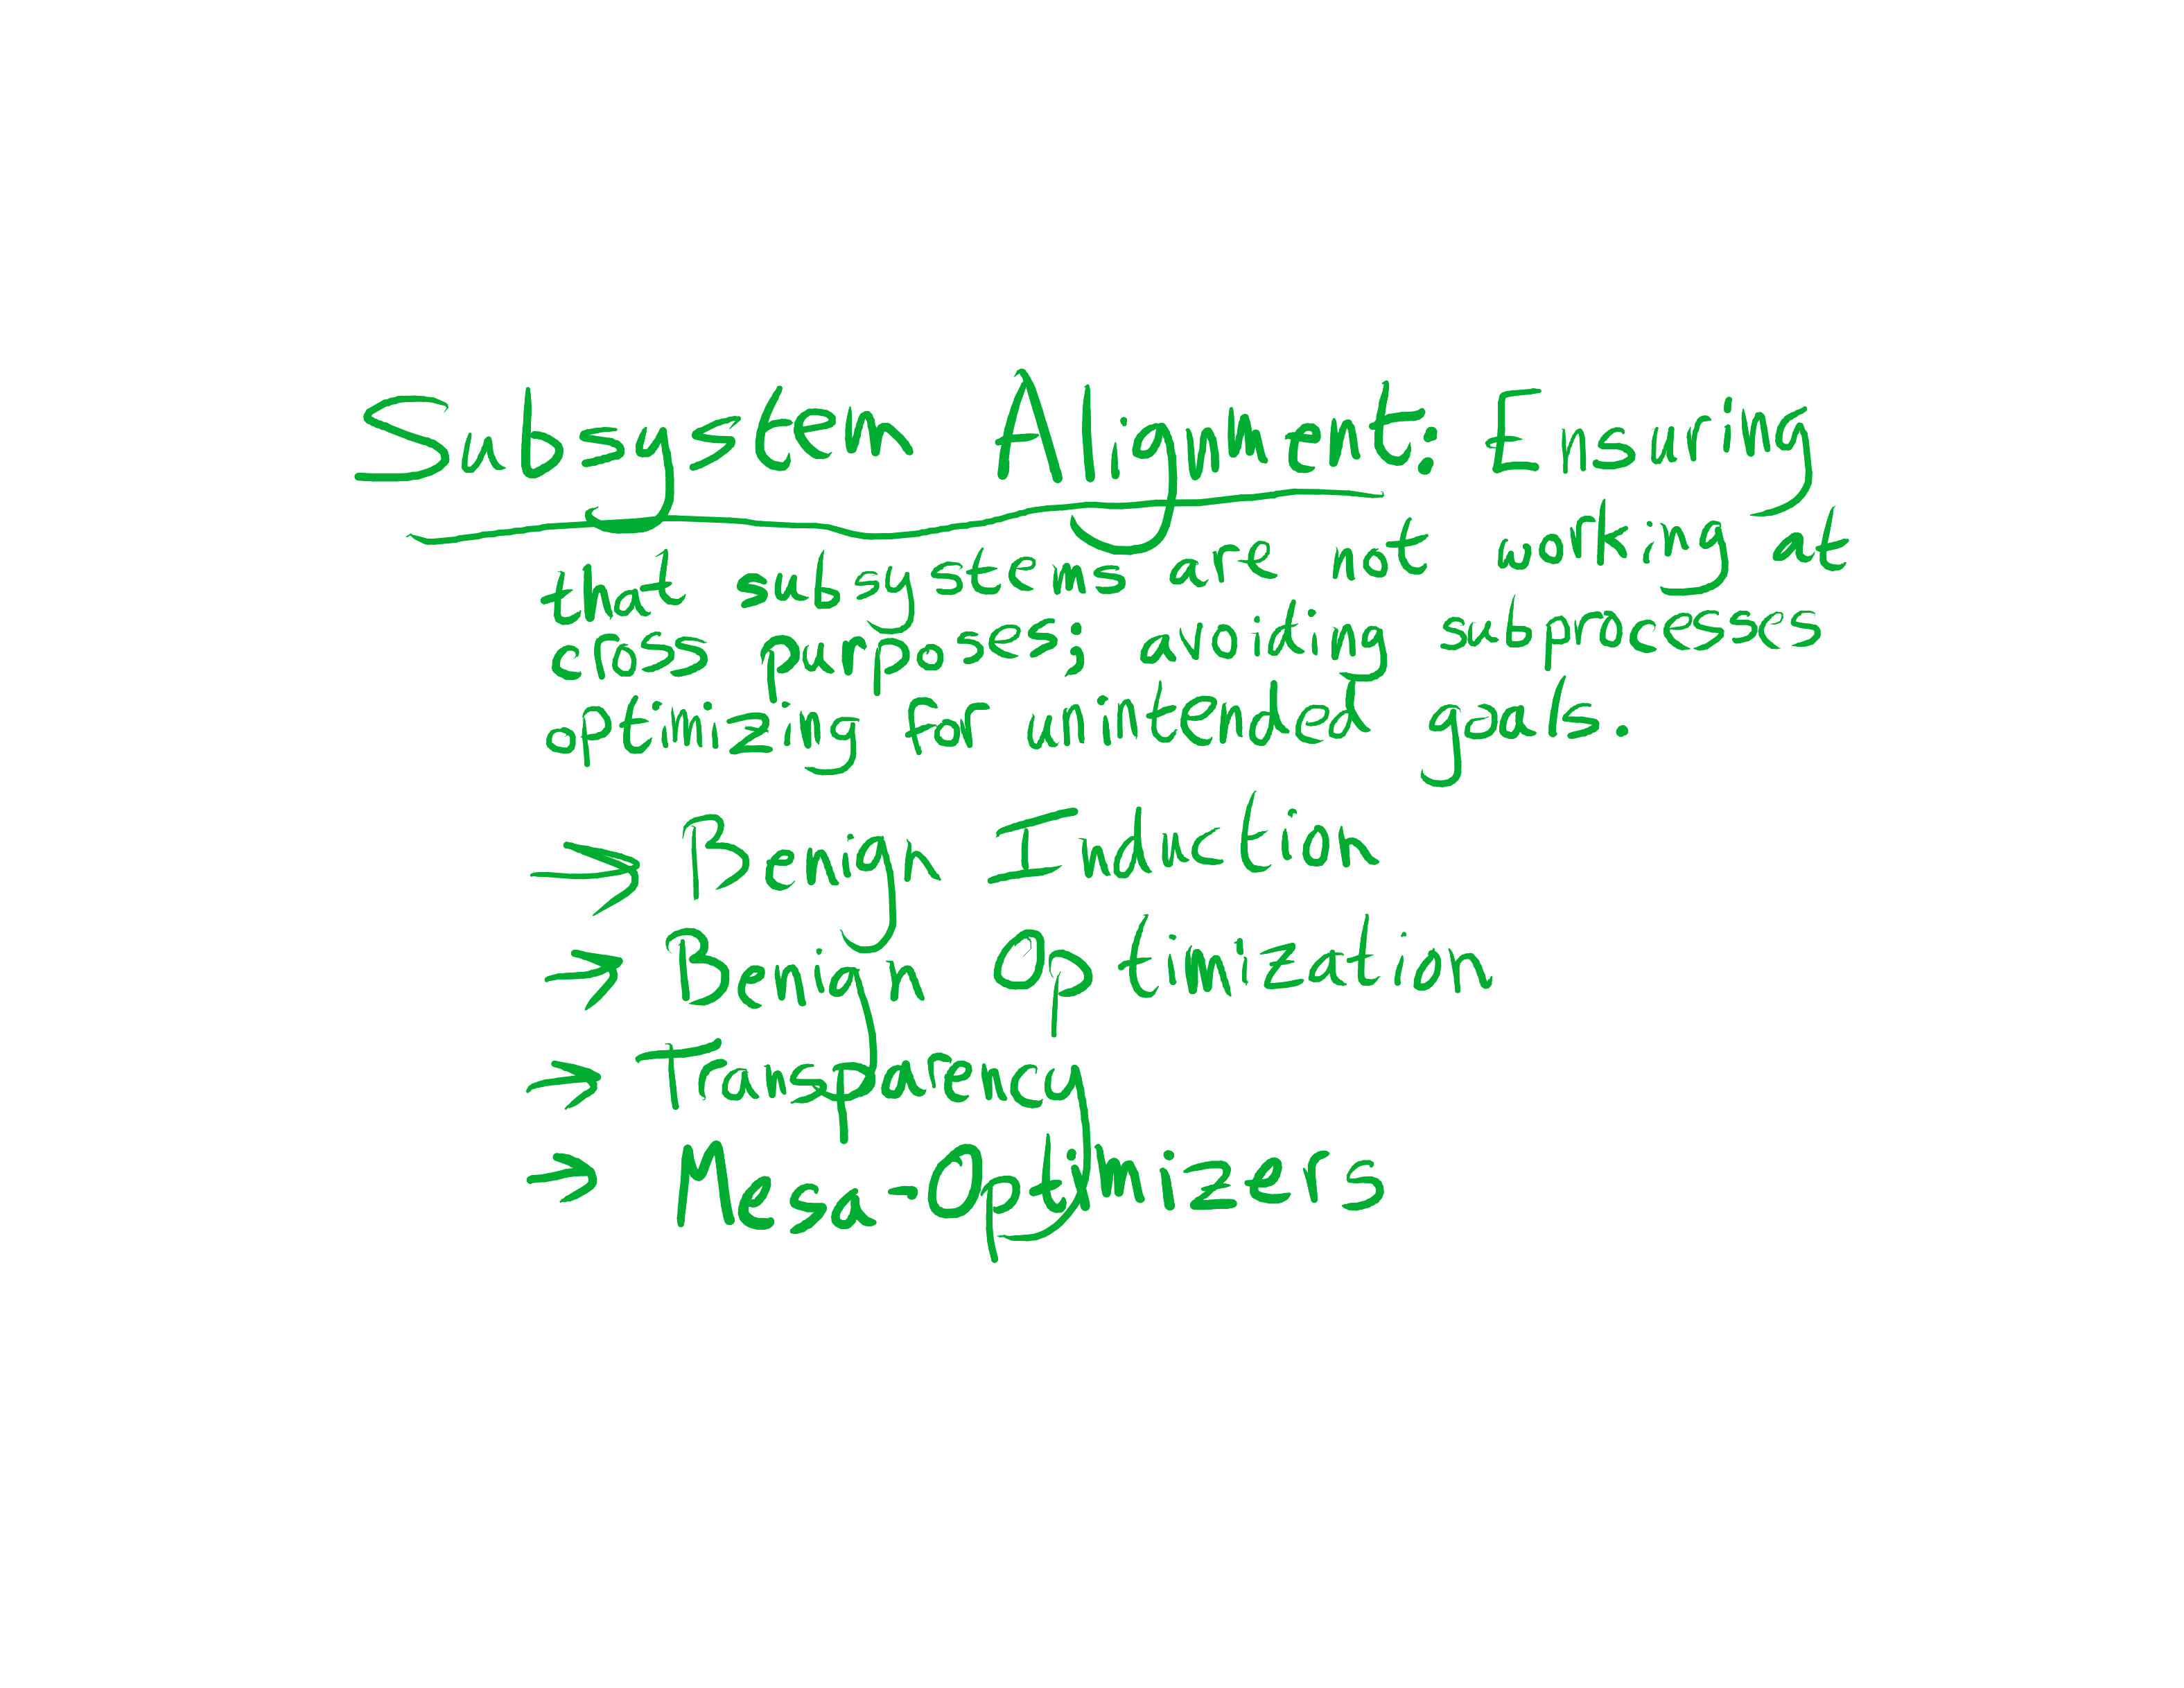 Subsystem Alignment: Ensuring
that subsystems are not working at
cross purposes; avoiding subprocesses
optimizing for unintended goals.
→ Benign Induction
→ Benign Optimization
→ Transparency
→ Mesa-Optimizers